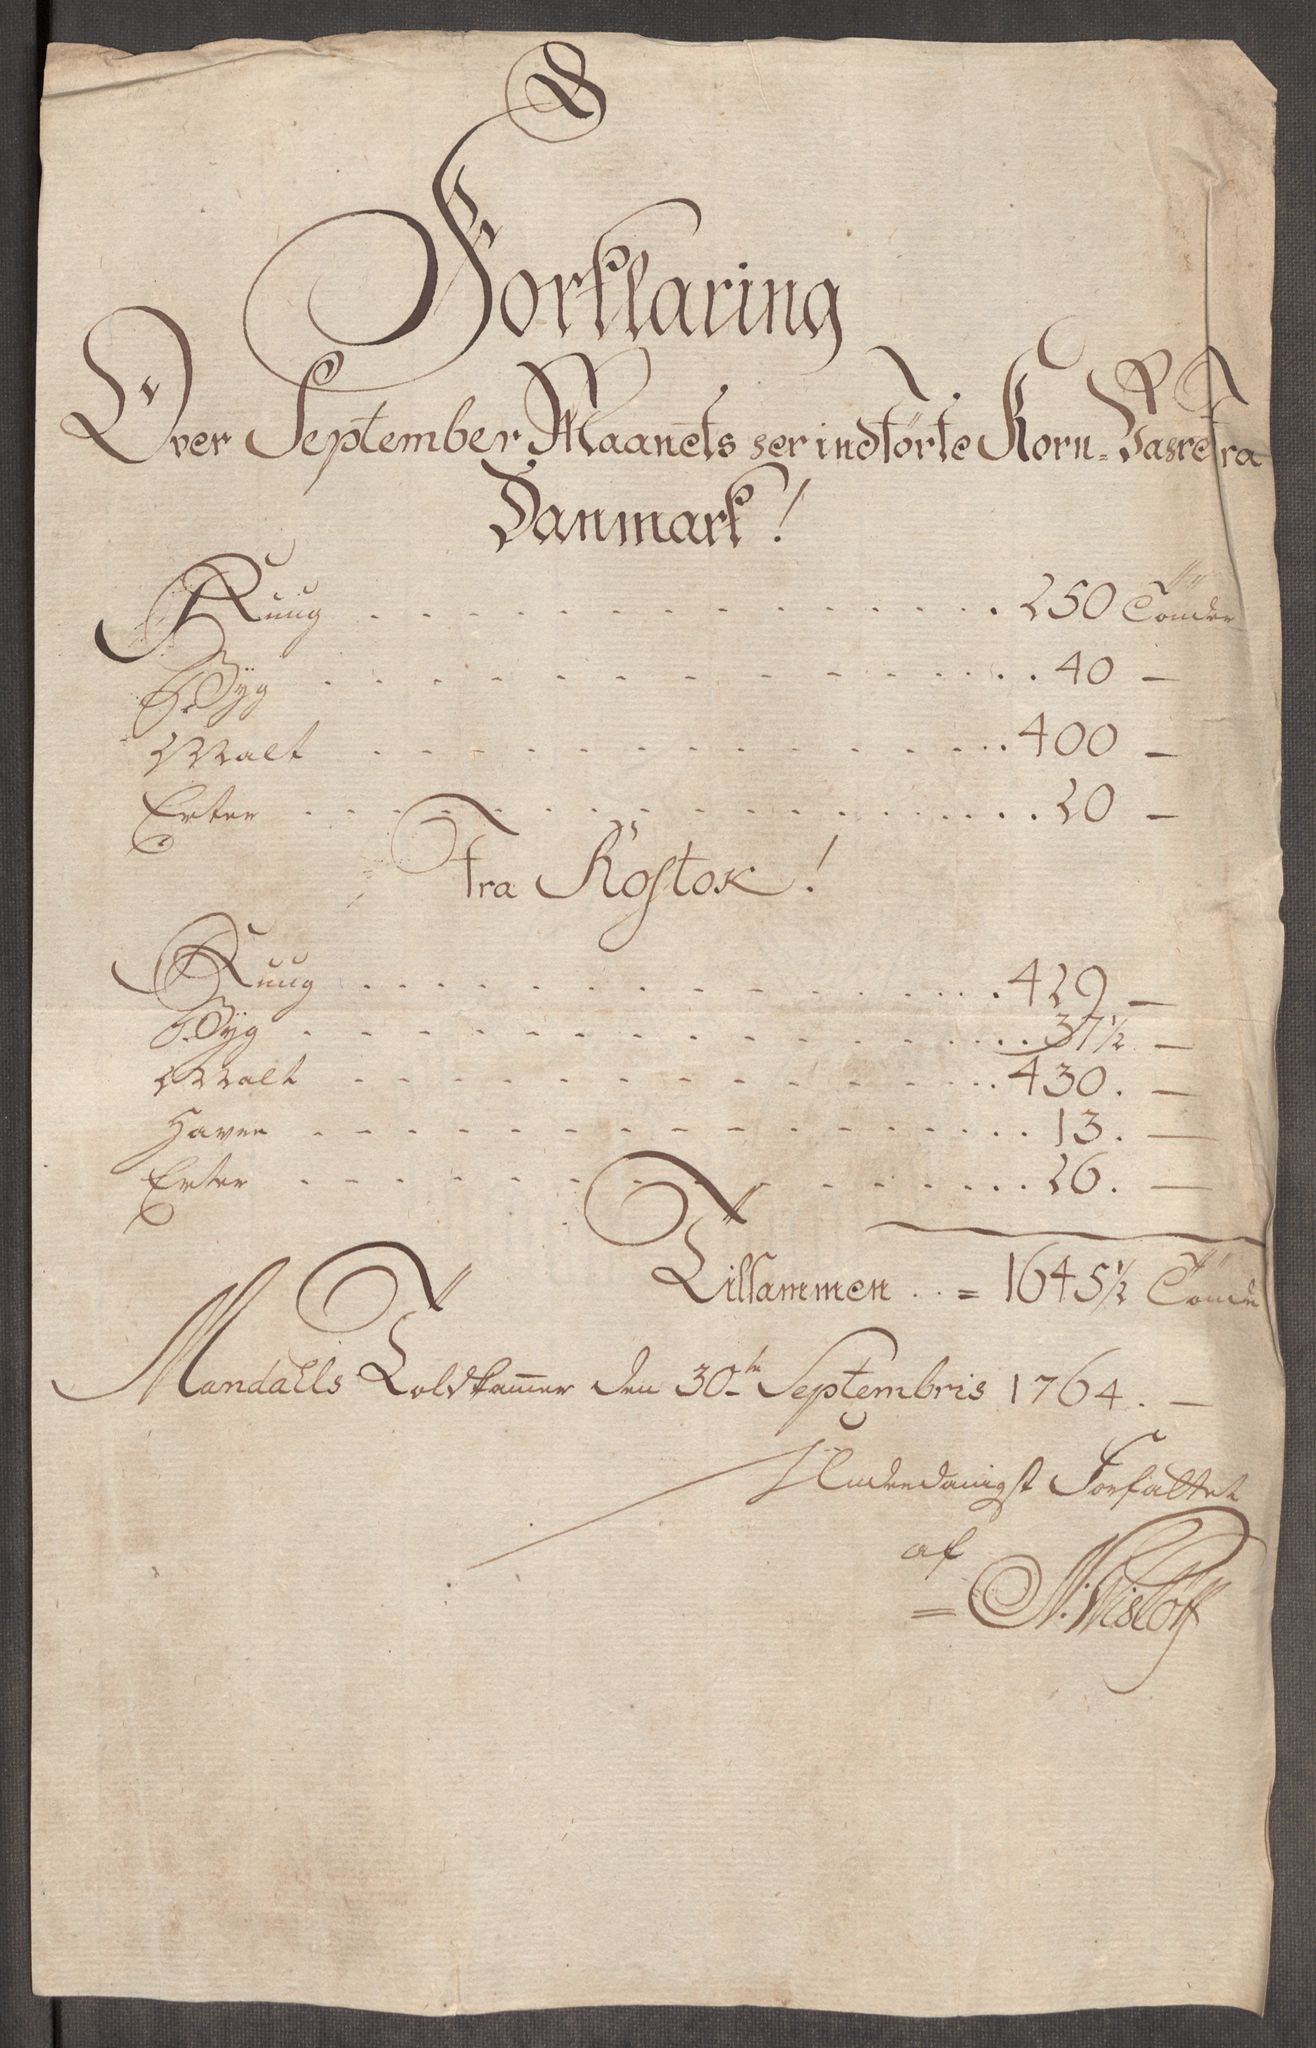 Forklaring
Over September Maanets her indførte Korn-Vahre fra
Danmark!
Ruug . . . 250 Tønder
Byg . . . 40 —
Malt . . . 400 —
Erter . . . 20 —
Fra Rostok!
Ruug . . . 429 —
Byg . . . 37½ —
Malt . . . 430. —
Havre . . . 13. —
Erter . . . 26. —
Tilsammen . . = 1645½ Tønder
Mandahls Toldkam̅er den 30te Septembris 1764. —
Underdanigst Forfattet
af
= N: Wisløff